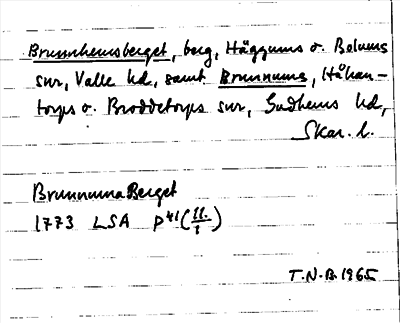 Brunnhemsberget, berg, Häggums o. Bolums
snr, Valle hd, samt Brunnums, Håkan-
torps o. Broddetorps snr, Gudhems hd,
Skar. l.
Brunnuma Berget
1773 LSA P41(11./1)
T.N.B. 1965